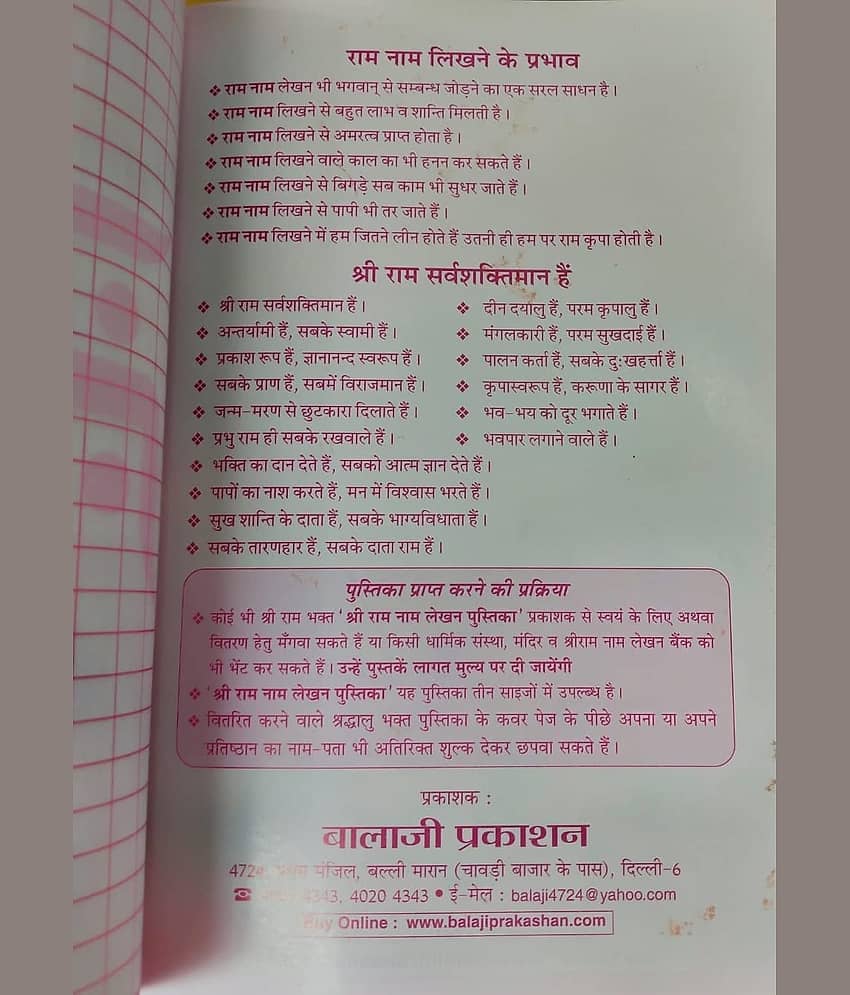 राम नाम लिखने के प्रभाव
❖ राम नाम लेखन भी भगवान् से सम्बन्ध जोड़ने का एक सरल साधन है।
❖ राम नाम लिखने से बहुत लाभ व शान्ति मिलती है।
❖ राम नाम लिखने से अमरत्व प्राप्त होता है।
❖ राम नाम लिखने वाले काल का भी हनन कर सकते हैं।
❖ राम नाम लिखने से बिगड़े सब काम भी सुधर जाते हैं।
❖ राम नाम लिखने से पापी भी तर जाते हैं।
❖ राम नाम लिखने में हम जितने लीन होते हैं उतनी ही हम पर राम कृपा होती है।
श्री राम सर्वशक्तिमान हैं
❖ श्री राम सर्वशक्तिमान हैं।
❖ अन्तर्यामी हैं, सबके स्वामी हैं।
❖ प्रकाश रूप हैं, ज्ञानानन्द स्वरूप हैं।
❖ सबके प्राण हैं, सबमें विराजमान हैं।
❖ जन्म-मरण से छुटकारा दिलाते हैं।
❖ प्रभु राम ही सबके रखवाले हैं।
❖ दीन दयालु हैं, परम कृपालु हैं।
❖ मंगलकारी हैं, परम सुखदाई हैं।
❖ पालन कर्ता हैं, सबके दुःखहर्त्ता हैं।
❖ कृपास्वरूप हैं, करूणा के सागर हैं।
❖ भव-भय को दूर भगाते हैं।
❖ भवपार लगाने वाले हैं।
❖ भक्ति का दान देते हैं, सबको आत्म ज्ञान देते हैं।
❖ पापों का नाश करते हैं, मन में विश्वास भरते हैं।
❖ सुख शान्ति के दाता हैं, सबके भाग्यविधाता हैं।
❖ सबके तारणहार हैं, सबके दाता राम हैं।
पुस्तिका प्राप्त करने की प्रक्रिया
❖ कोई भी श्री राम भक्त 'श्री राम नाम लेखन पुस्तिका' प्रकाशक से स्वयं के लिए अथवा
वितरण हेतु मँगवा सकते हैं या किसी धार्मिक संस्था, मंदिर व श्रीराम नाम लेखन बैंक को
भी भेंट कर सकते हैं। उन्हें पुस्तकें लागत मुल्य पर दी जायेंगी
❖ 'श्री राम नाम लेखन पुस्तिका' यह पुस्तिका तीन साइजों में उपलब्ध है।
❖ वितरित करने वाले श्रद्धालु भक्त पुस्तिका के कवर पेज के पीछे अपना या अपने
प्रतिष्ठान का नाम-पता भी अतिरिक्त शुल्क देकर छपवा सकते हैं।
प्रकाशक :
बालाजी प्रकाशन
4724, मंजिल, बल्ली मारान (चावड़ी बाजार के पास), दिल्ली-6
☎ 4343, 4020 4343 • ई-मेल : balaji4724@yahoo.com
Buy Online : www.balajiprakashan.com